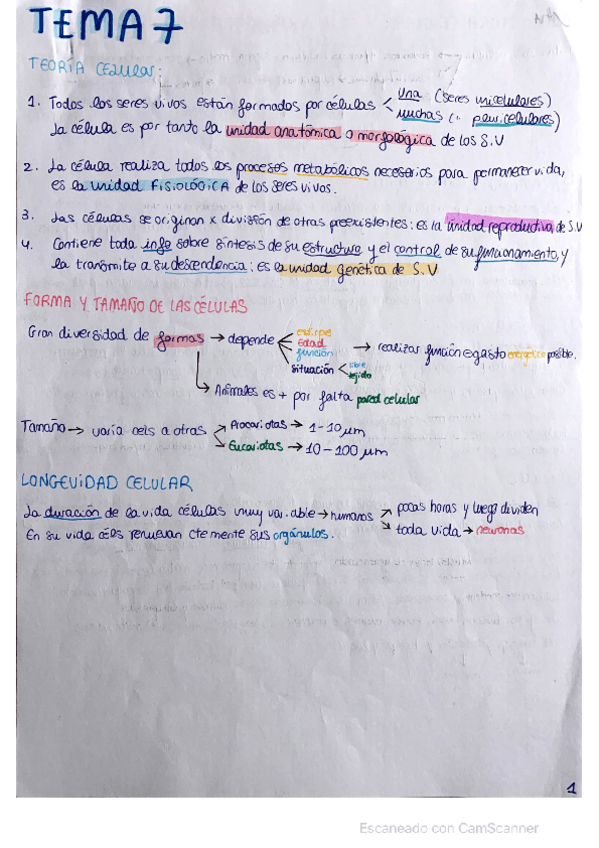 TEMA 7
TEORÍA CELULAR:
1. Todos los seres vivos están formados por células < una (seres unicelulares)
muchas (" pluricelulares)
La célula es por tanto la unidad anatómica o morfológica de los S.V
2. La célula realiza todos los procesos metabólicos necesarios para permanecer vida,
es la unidad FISIOLÓGICA de los seres vivos.
3. Las células se originan x división de otras preexistentes: es la unidad reproductiva de S.V
4. Contiene toda info sobre síntesis de su estructura y el control de su funcionamiento, y
la transmite a su descendencia: es la unidad genética de S.V
FORMA Y TAMAÑO DE LAS CÉLULAS
Gran diversidad de formas → depende
estirpe
Edad
función
situación < libre
tejido
→ realizar función e gasto energético posible.
→ Animales es + por falta pared celular
Tamaño → varía cels a otras
Procariotas → 1-10 µm
Eucariotas → 10-100 µm
LONGEVIDAD CELULAR
La duración de la vida células muy variable → humanos
pocas horas y luego dividen
toda vida → neuronas
En su vida cels renuevan ctemente sus orgánulos.
1
Escaneado con CamScanner